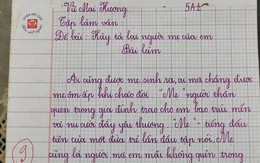 Vũ Mai Hương - 5A1
Tập làm văn:
Đề bài: Hãy tả lại người mẹ của em
Bài làm
Ai cũng được mẹ sinh ra, ai mà chẳng được
mẹ ôm ấp khi chào đời. "Mẹ" người thân
quen trong gia đình trao cho em bao trìu mến
và nụ cười đầy yêu thương. "Mẹ" - tiếng đầu
tiên của một đứa trẻ lần đầu tập nói. Mẹ
cũng là người mà em mãi không quên trong
9